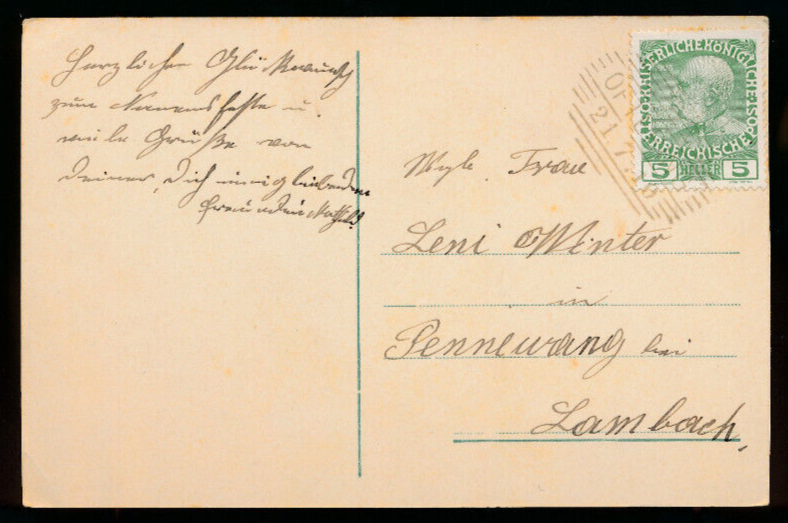 Herzlichen Glückwunsch
zum Namensfeste u.
viele Grüße von
Deiner, Dich innig liebenden
Freundin
KAISERLICHE KÖNIGLICHE
ÖSTERREICHISCHE POST
5 HELLER 5
21.
Frau
Leni Winter
in
Pennewang bei
Lambach,